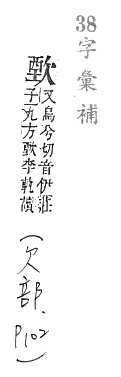 38字彙補
歅 又烏兮切音伊莊
子九方歅李軌讀
(欠部. P102)